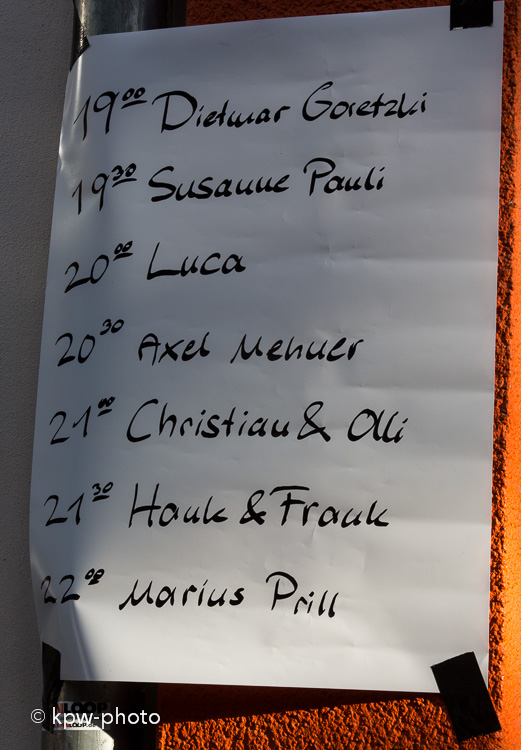 19⁰⁰ Dietmar Goretzki
19³⁰ Susanne Pauli
20⁰⁰ Luca
20³⁰ Axel Mehner
21⁰⁰ Christian & Olli
21³⁰ Hauk & Frank
22⁰⁰ Marius Prill
LOOP
© kpw-photo